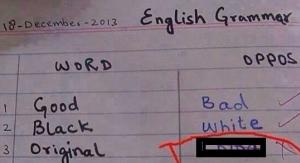 18-December-2013 English Grammar
WORD OPPOS
1 Good Bad
2 Black White
3 Original